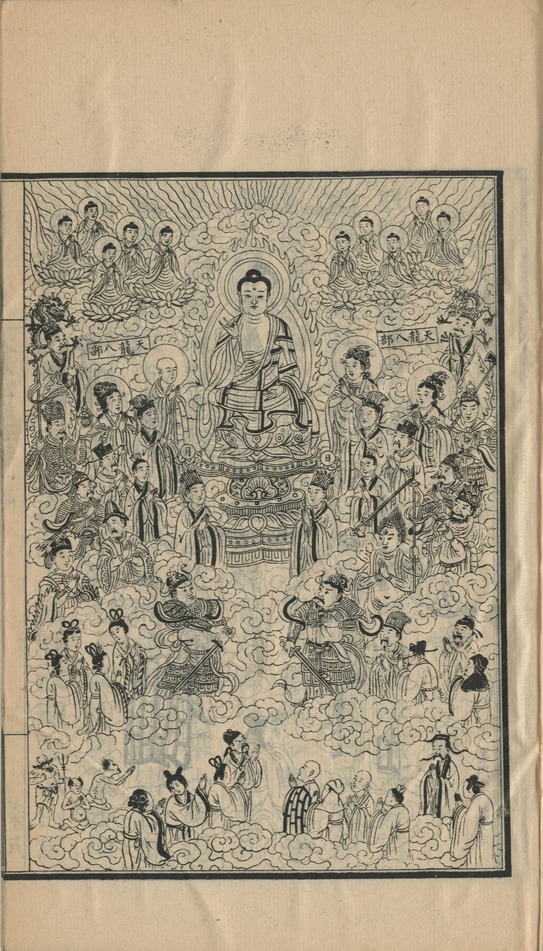 天龍八部
天龍八部